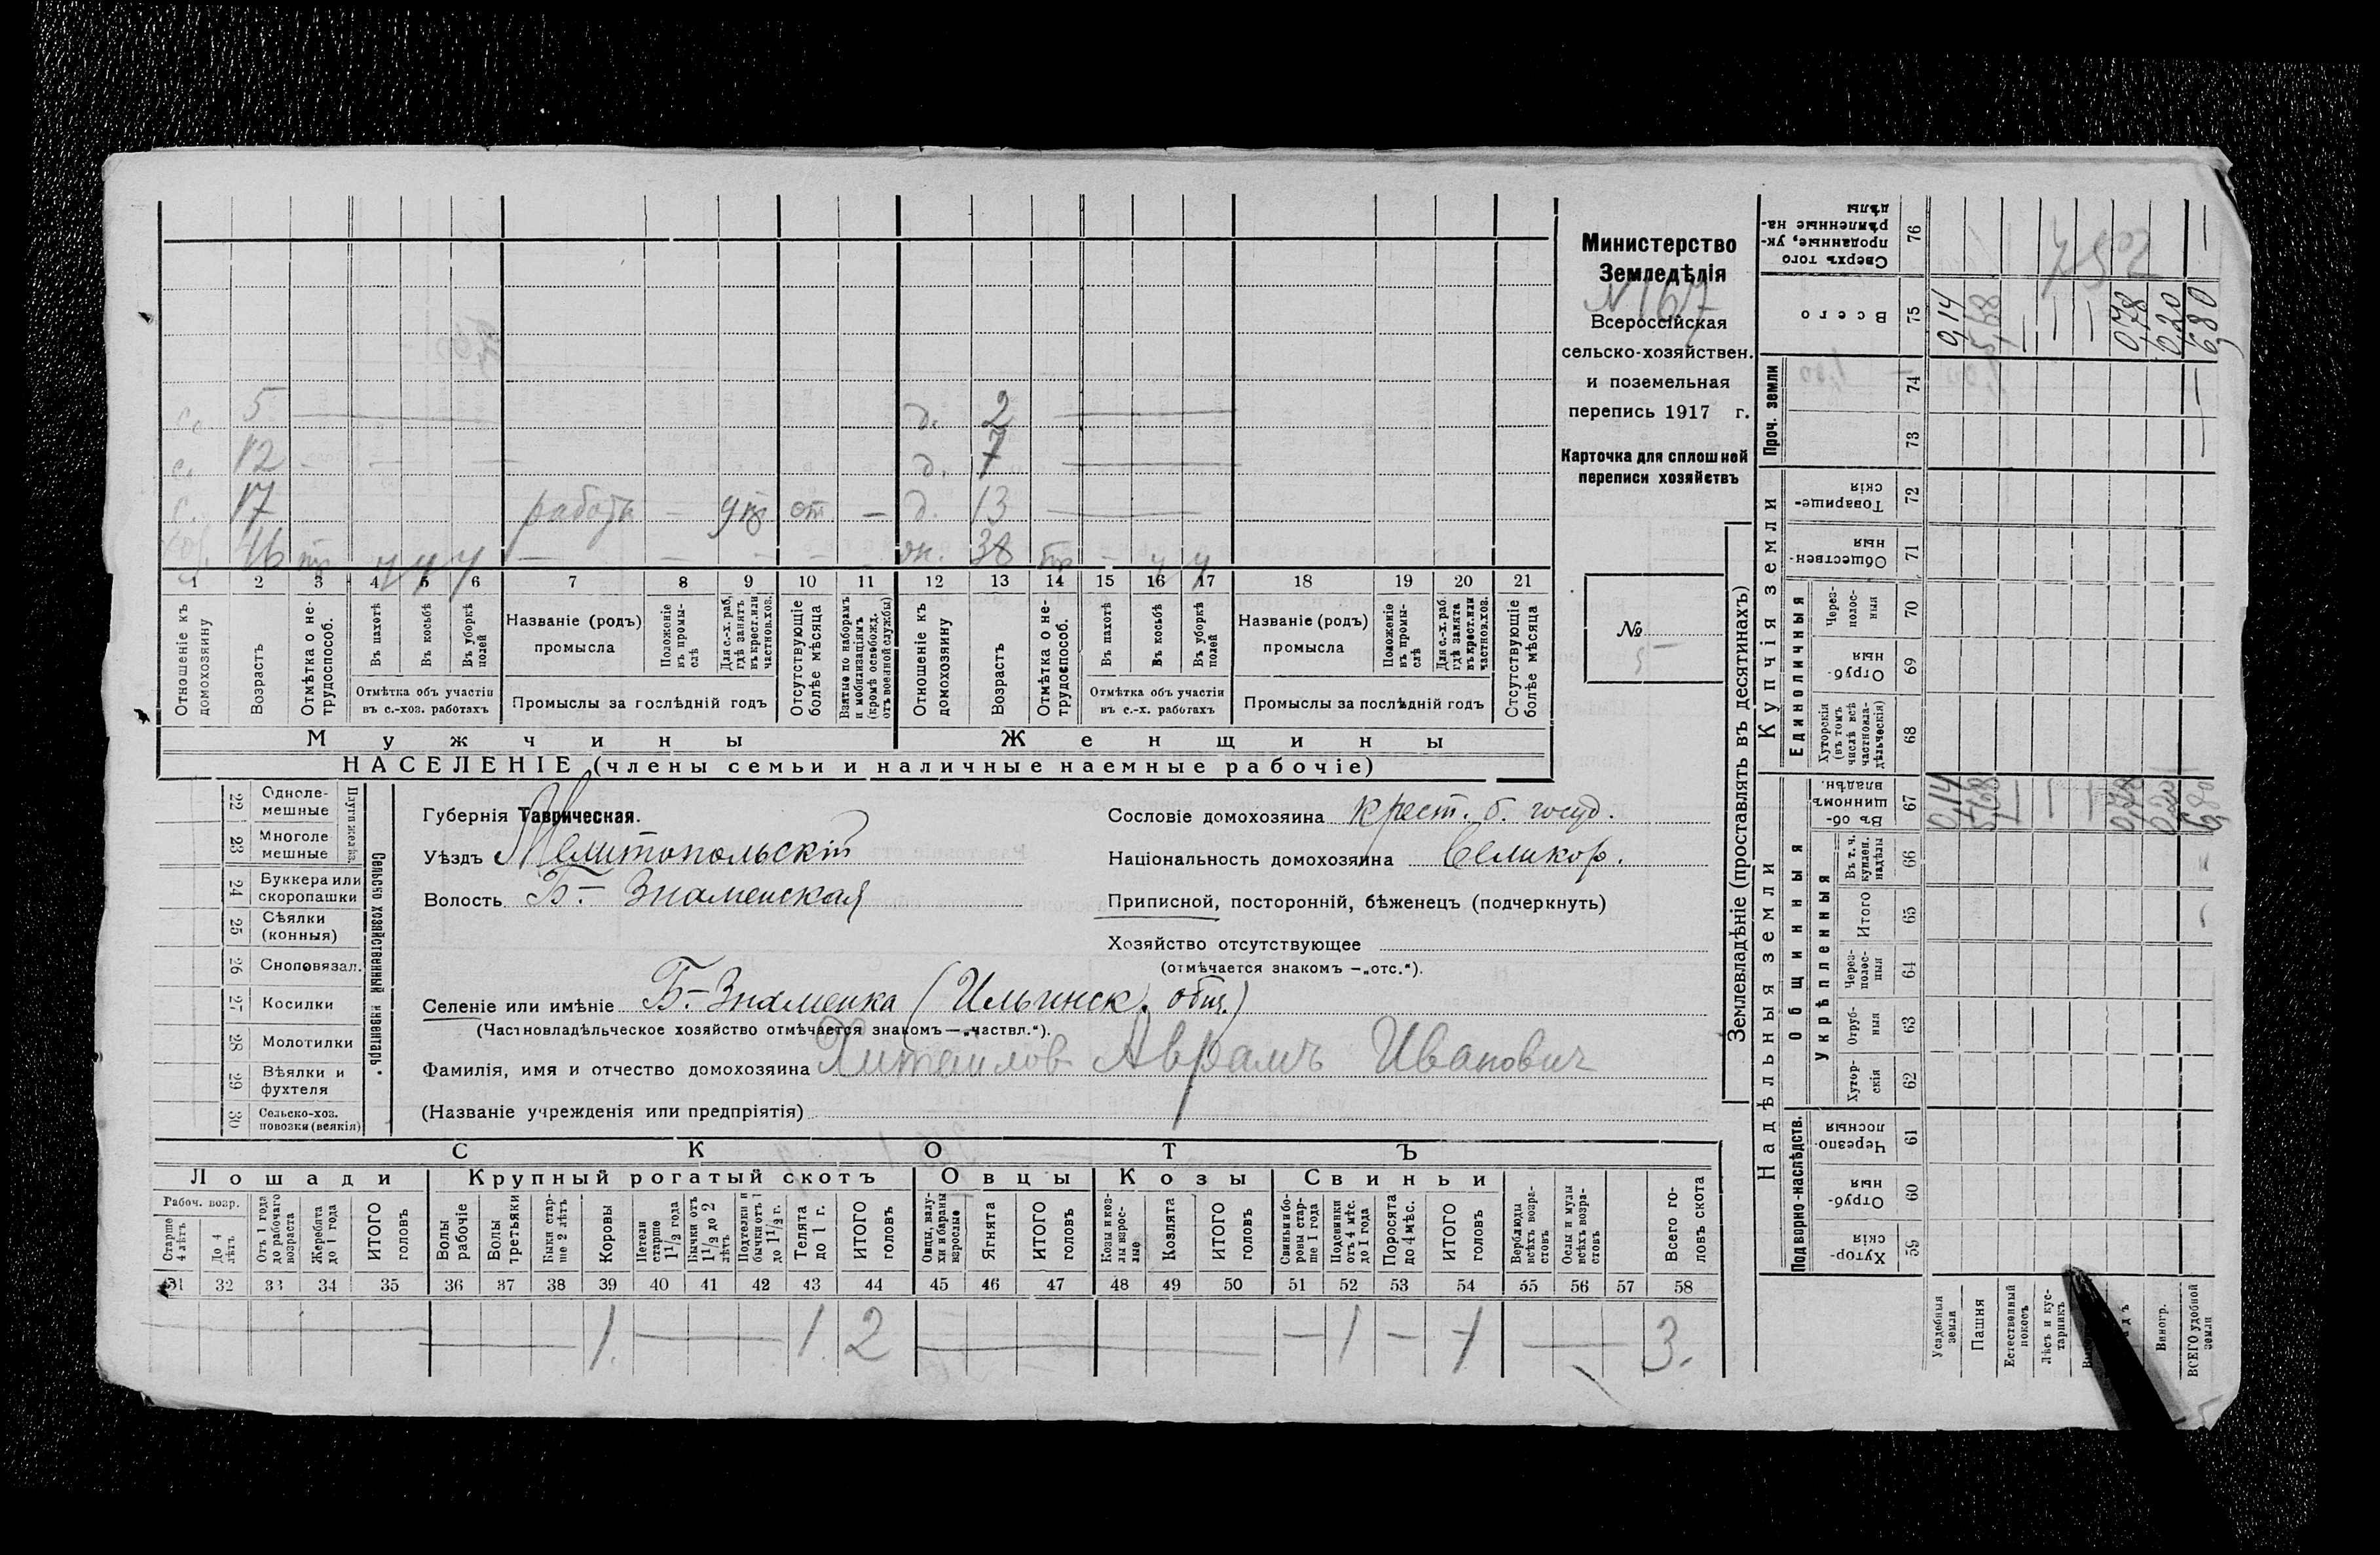 с. 5 д. 2
с. 12 д. 7
с. 17 работн — от — д. 13
хоз. 46 жн. 38
1 2 3 4 5 6 7 8 9 10 11 12 13 14 15 16 17 18 19 20 21
Отношеніе къ домохозяину
Возрастъ
Отмѣтка о не-трудоспособ.
Въ пахотѣ
Въ косьбѣ
Въ уборкѣ полей
Отмѣтка объ участіи въ с.-хоз. работахъ
Названіе (родъ) промысла
Положеніе въ промы-слѣ
Для с.-х. раб, гдѣ занятъ въ крест. или частнов. хоз.
Промыслы за послѣдній годъ
Отсутствующіе болѣе мѣсяца
Взятые по наборамъ и мобилизаціямъ (кромѣ освобожд. отъ военной службы)
Отношеніе къ домохозяину
Возрастъ
Отмѣтка о не-трудоспособ.
Въ пахотѣ
Въ косьбѣ
Въ уборкѣ полей
Отмѣтка объ участіи въ с.-х. работахъ
Названіе (родъ) промысла
Положеніе въ промы-слѣ
Для с.-х. раб. гдѣ занята въ крест. или частнов. хоз.
Промыслы за послѣдній годъ
Отсутствующіе болѣе мѣсяца
Мужчины Женщины
НАСЕЛЕНІЕ (члены семьи и наличные наемные рабочіе)
Министерство
Земледѣлія
N 167
Всероссійская
сельско-хозяйствен.
и поземельная
перепись 1917 г.
Карточка для сплошной
переписи хозяйствъ
№
5
22 Одноле-мешные
23 Многоле мешные
24 Буккера или скоропашки
25 Сѣялки (конныя)
26 Сноповязал.
27 Косилки
28 Молотилки
29 Вѣялки и фухтеля
30 Сельско-хоз. повозки (всякія)
Сельско хозяйственный инвентарь.
Губернія Таврическая.
Уѣздъ Мелитопольскій
Волость Б.- Знаменская
Сословіе домохозяина крест. б. госуд.
Національность домохозяина Великор.
Приписной, посторонній, бѣженецъ (подчеркнуть)
Хозяйство отсутствующее
(отмѣчается знакомъ —„отс.“).
Селеніе или имѣніе Б.-Знаменка (Ильинск. общ.)
(Частновладѣльческое хозяйство отмѣчается знакомъ —„частвл.“).
Фамилія, имя и отчество домохозяина Аврамъ Иванович
(Названіе учрежденія или предпріятія)
СКОТЪ
Лошади Крупный рогатый скотъ Овцы Козы Свиньи
Рабоч. возр.
Старше 4 лѣтъ
До 4 лѣтъ
Отъ 1 года до рабочаго возраста
Жеребята до 1 года
ИТОГО головъ
Волы рабочіе
Волы третьяки
Быки стар-ше 2 лѣтъ
Коровы
Нетели старше 1 1/2 года
Бычки отъ 1 1/2 до 2 лѣтъ
Подтелки и бычки отъ 1 до 1 1/2 г.
Телята до 1 г.
ИТОГО головъ
Овцы, валу-хи и бараны взрослые
Ягнята
ИТОГО головъ
Козы и коз-лы взрос-лые
Козлята
ИТОГО головъ
Свиньи и бо-ровы стар-ше 1 года
Подсвинки отъ 4 мѣс. до 1 года
Поросята до 4 мѣс.
ИТОГО головъ
Верблюды всѣхъ возра-стовъ
Ослы и мулы всѣхъ возра-стовъ
Всего го-ловъ скота
31 32 33 34 35 36 37 38 39 40 41 42 43 44 45 46 47 48 49 50 51 52 53 54 55 56 57 58
1 — 1 2 — — 1 — 1 — 3.
Землевладѣніе (проставлять въ десятинахъ)
Надѣльныя земли Купчія земли Проч. земли
Подворно-наслѣдств.
Общинныя
Укрѣпленныя
Единоличныя
Хутор-скія 59
Отруб-ныя 60
Черезпо-лосныя 61
Хутор-скія 62
Отруб-ныя 63
Черезполос-ныя 64
Итого 65
Въ т. ч. куплен. надѣлы 66
Въ об-щинномъ владѣн. 67
Хуторскія (въ томъ числѣ всѣ частновла-дѣльческія) 68
Отруб-ныя 69
Черезполос-ныя 70
Обществен-ныя 71
Товарище-скія 72
73
74
Всего 75
Сверхъ того проданные, ук-рѣпленные на-дѣлы 76
Усадебныя земли 0,14 0,14
Пашня 5,68 5,68
Естественный покосъ
Лѣсъ и кус-тарникъ
0,78 0,78
Виногр. 0,20 0,20
ВСЕГО удобной земли 6,80 6,80